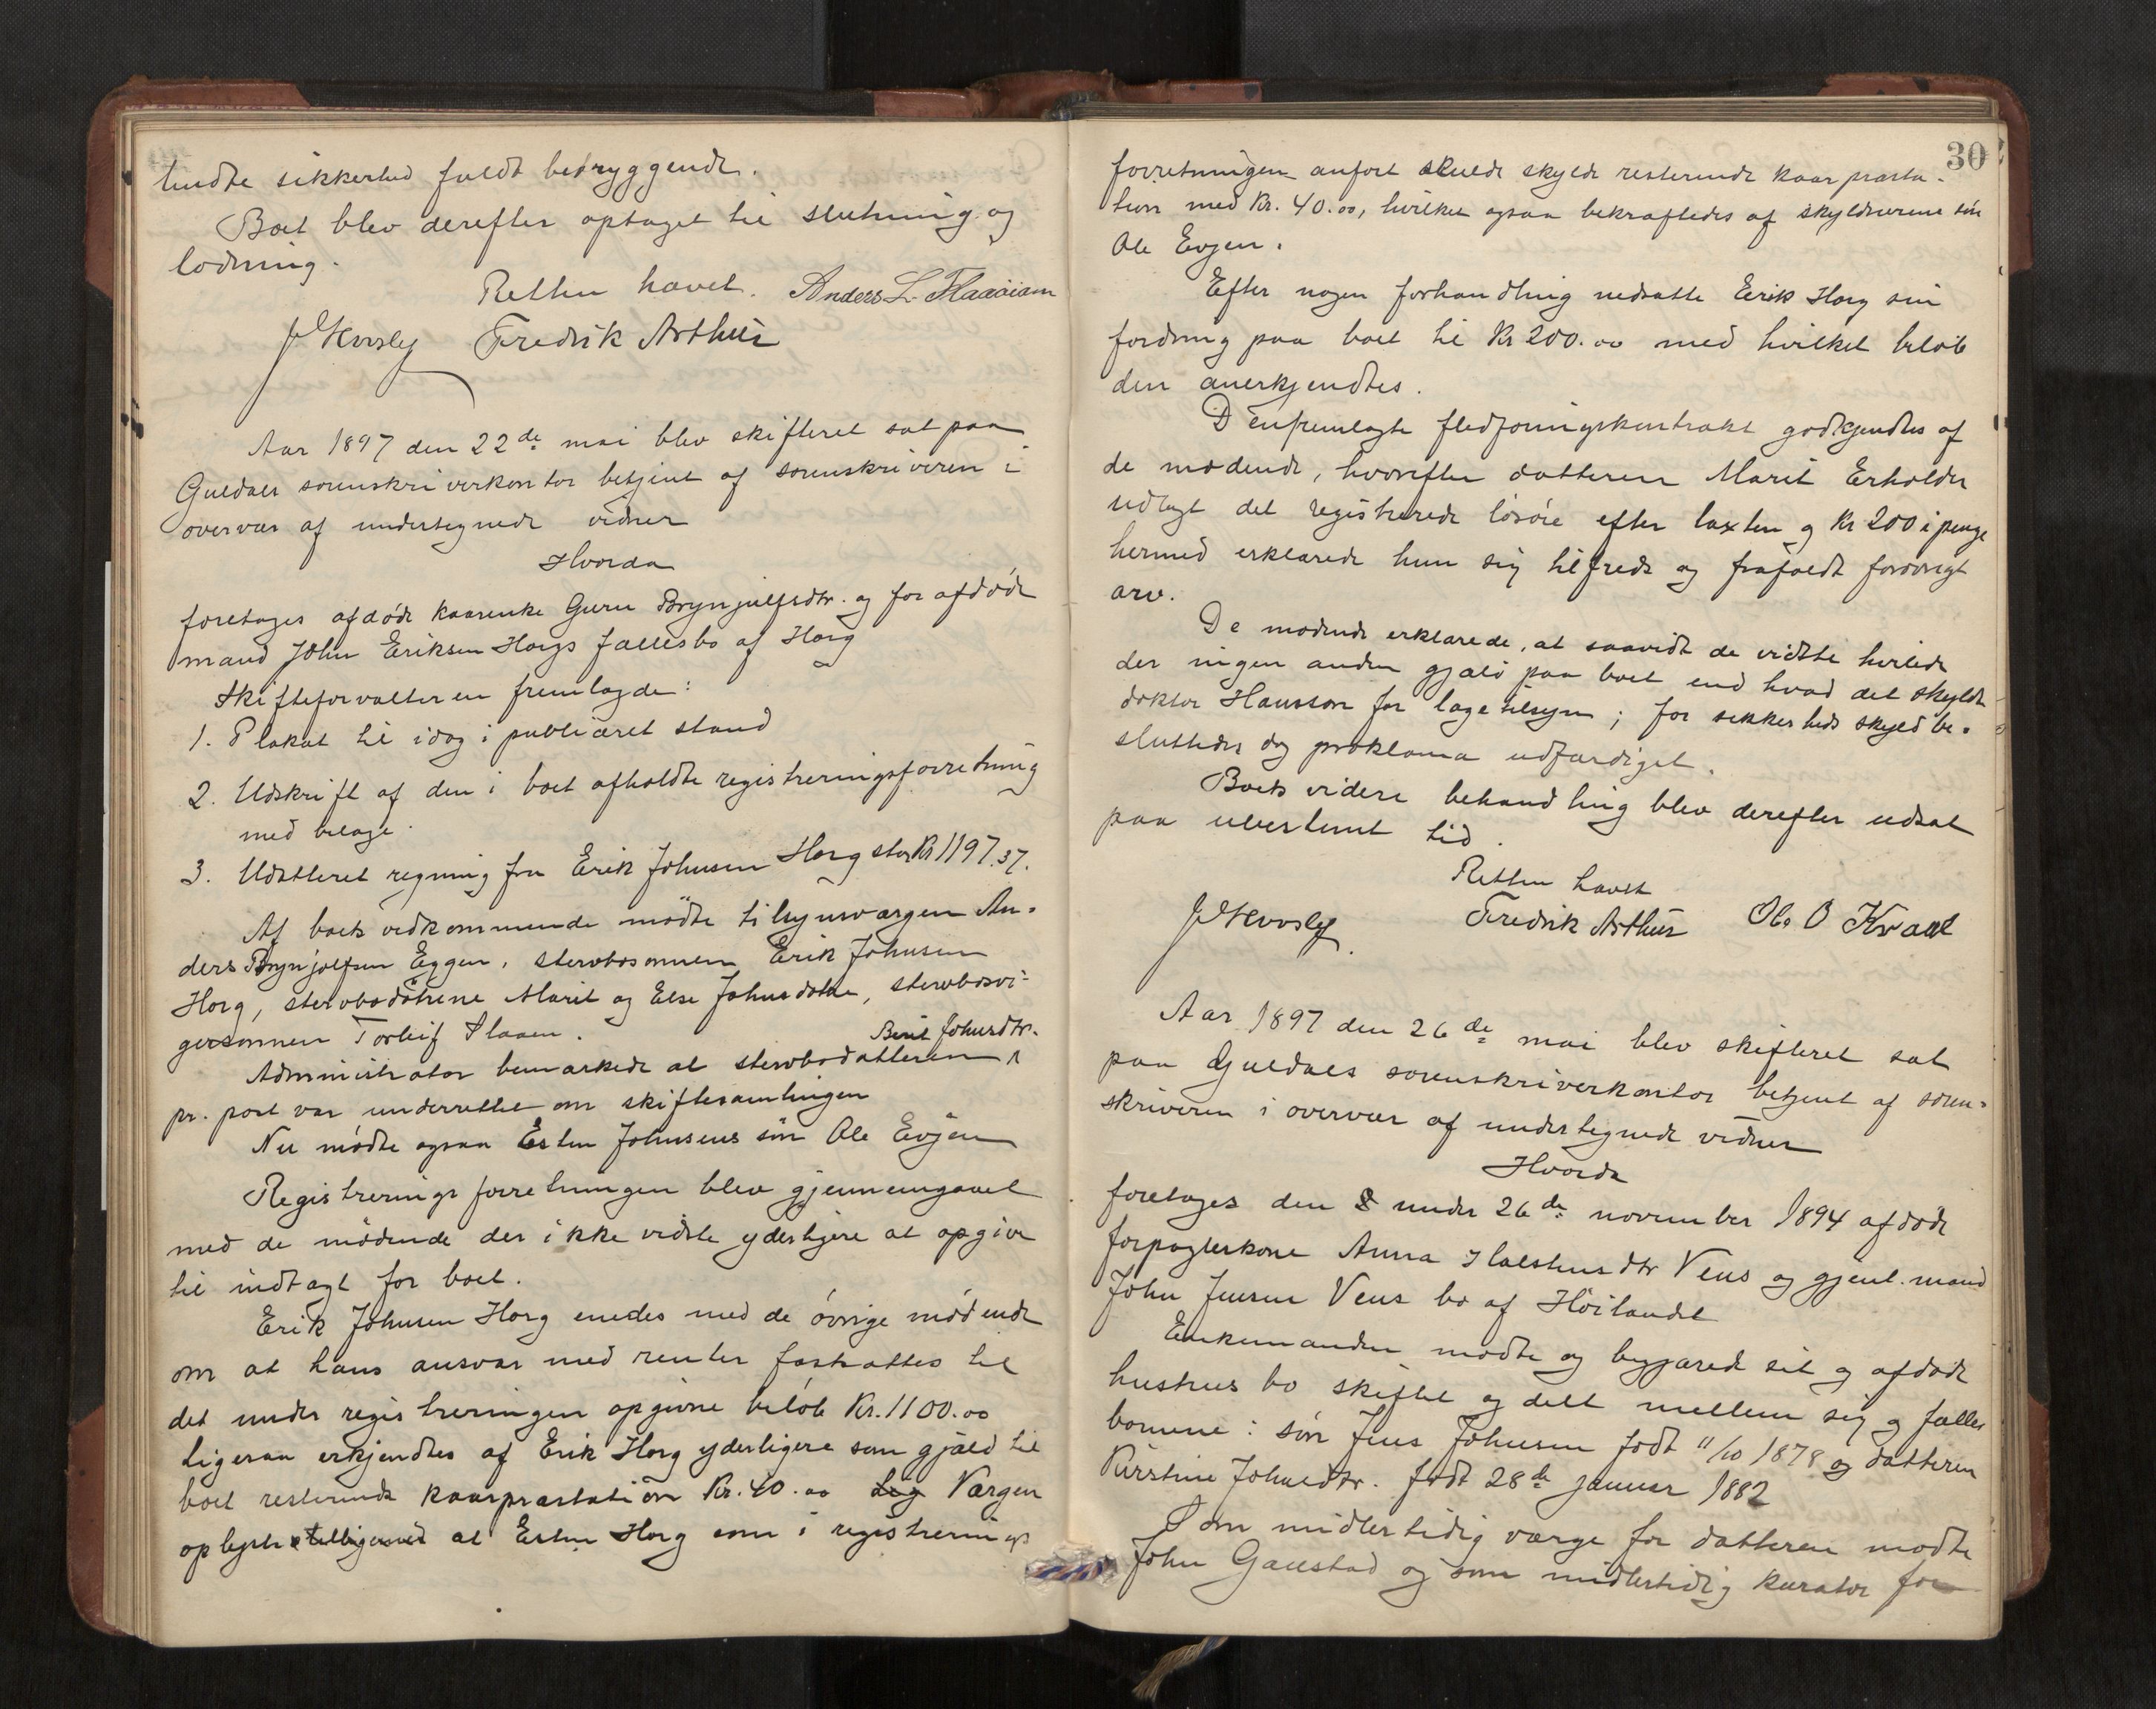 budte sikkerhed fuldt betryggende.
Boet blev derefter optaget til slutning og
lodning.
Retten hævet. Anders L. Flaaøien
Fredrik Arthur
Aar 1897 den 22de mai blev skifteret sat paa
Guldals sorenskriverkontor betjent af sorenskriveren i
overvær af undertegnede vidner
Hvorda
foretoges afdøde kaarenke Guru Brynjulfsdtr. og før afdøde
mand John Eriksen Horgs fællesbo af Horg
Skifteforvalteren fremlagde:
1. Plakat til idag i publiceret stand
2. Udskrift af den i boet afholdte registreringsforretning
med bilage.
3. Udatteret regning fra Erik Johnsen Horg stor Kr 1197.37.
Af boets vedkommende mødte tilsynsværgen An-
ders Brynjolfsen Eggen, stervbosønnen Erik Johnsen
Horg, stervbodøtrene Marit og Else Johnsdøtre, stervbosvi-
gersønnen Torleif Slaaen.
Administrator bemærkede at stervbodatteren Berit Johnsdtr.
pr. post var underrettet om skiftesamlingen
Nu mødte ogsaa Esten Johnsens søn Ole Evjen
Registreringsforretningen blev gjennemgaaet
med de mødende der ikke vidste yderligere at opgive
til indtægt for boet.
Erik Johnsen Horg enedes med de øvrige mødende
om at hans ansvar med renter fastsattes til
det under registreringen opgivne beløb Kr. 1100.00
ligesaa erkjendtes af Erik Horg yderligere som gjæld til
boet resterende kaarpræstation Kr. 40.00 Værgen
oplyste at Esten Horg som i registrerings
30
forretningen anført skulde skylde resterende kaarpræsta-
tion med Kr. 40.00, hvilket ogsaa bekræftedes af skyldnerens søn
Ole Evjen.
Efter nogen forhandling nedsatte Erik Horg sin
fordring paa boet til Kr 200.00 med hvilket beløb
den anerkjendtes.
Den fremlagte fledføringskontrakt godkjendtes af
de mødende, hvorefter datteren Marit Erholder
udlagt det registrerede løsøre efter taxten og Kr 200 i penge
hermed erklærede hun sig tilfreds og frafaldt forøvrigt
arv.
De mødende erklærede, at saavidt de vidste hvilede
der ingen anden gjæld paa boet end hvad det skyldte
doktor Hansson for lægetilsyn; for sikkerheds skyld be-
sluttedes dog proklama udfærdiget.
Boets videre behandling blev derefter udsat
paa ubestemt tid.
Retten hævet
Fredrik Arthur Ole O Kvaal
Aar 1897 den 26de mai blev skifteret sat
paa Guldals sorenskriverkontor betjent af soren-
skriveren i overvær af undertegnede vidner
Hvorda
foretoges den under 26de november 1894 afdøde
forpagterkone Anna Halstensdtr Vens og gjenl. mand
John Jensen Vens bo af Høilandet
Enkemanden mødte og begjærede sit og afdøde
hustrus bo skiftet og delt mellem sig og fælles
børnene: søn Jens Johnsen født 11/10 1878 og datteren
Kirstine Johnsdtr. født 28de januar 1882
Som midlertidig værge for datteren mødte
John Gaustad og som midlertidig kurator for